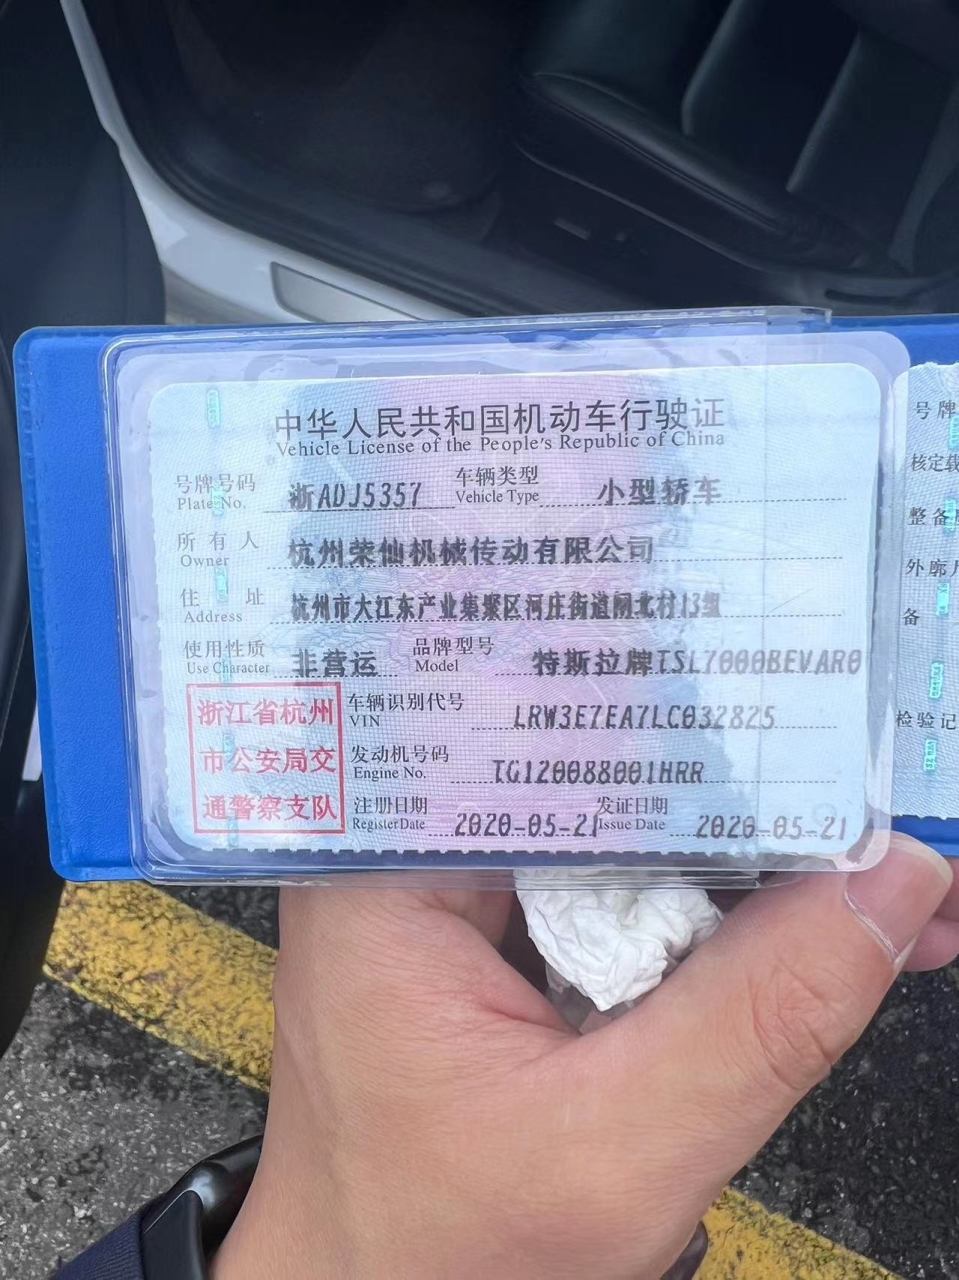 中华人民共和国机动车行驶证
Vehicle License of the People's Republic of China
号牌号码 浙ADJ5357 车辆类型 小型轿车
Plate No. Vehicle Type
所有人 杭州荣仙机械传动有限公司
Owner
住址 杭州市大江东产业集聚区河庄街道闸北村13组
Address
使用性质 非营运 品牌型号 特斯拉牌TSL7000BEVAR0
Use Character Model
浙江省杭州
市公安局交
通警察支队
车辆识别代号 LRW3E7EA7LC032825
VIN
发动机号码 TG120088001HRR
Engine No.
注册日期 2020-05-21 发证日期 2020-05-21
Register Date Issue Date
号牌
核定载
整备
外廓
备
检验记